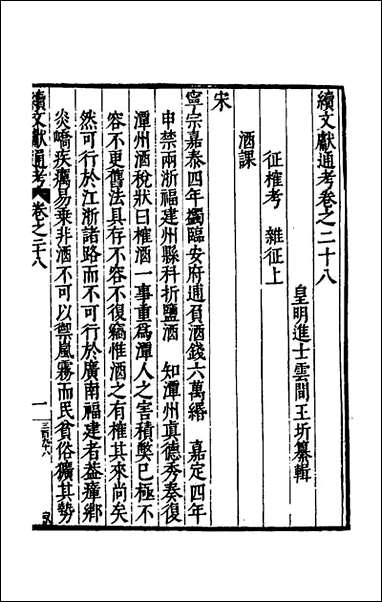 續文獻通考卷之二十八
皇明進士雲間王圻纂輯
征榷考 雜征上
酒課
宋
寧宗嘉泰四年蠲臨安府逋負酒錢六萬緡 嘉定四年
申禁兩浙福建州縣科折鹽酒 知潭州真德秀奏復
潭州酒稅狀曰榷酒一事重為潭人之害積弊已極不
容不更舊法具存不容不復竊惟酒之有榷其來尚矣
然可行於江浙諸路而不可行於廣南福建者葢瘴鄉
炎嶠疾癘易乗非酒不可以禦嵐霧而民貧俗獷其勢
續文獻通考 卷之二十八
一